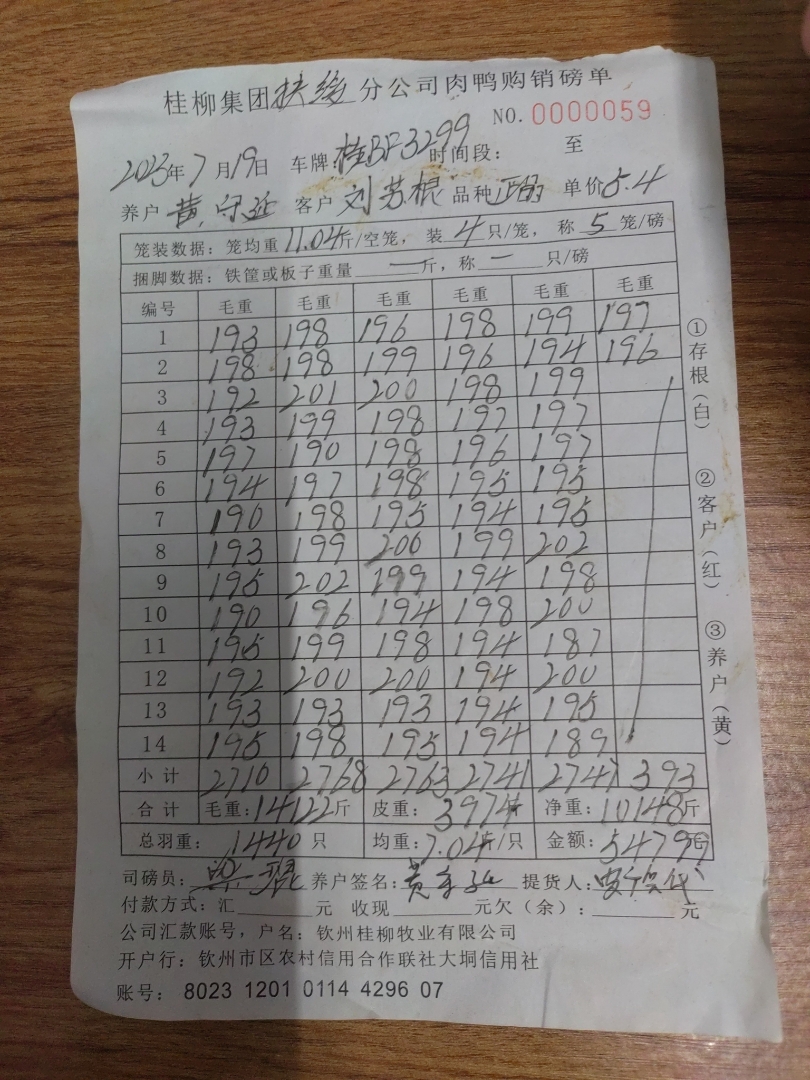 桂柳集团扶绥分公司肉鸭购销磅单
NO. 0000059
2023年7月19日 车牌:桂BF3299 时间段: 至
养户 黄守延 客户 刘苏根 品种 单价5.4
笼装数据: 笼均重11.04斤/空笼, 装4只/笼, 称5笼/磅
捆脚数据: 铁筐或板子重量一斤, 称一只/磅
编号 毛重 毛重 毛重 毛重 毛重 毛重
1 193 198 196 198 199 197
2 198 198 199 196 194 196
3 192 201 200 198 199
4 193 199 198 197 197
5 197 190 198 196 197
6 194 197 198 195 195
7 190 198 195 194 195
8 193 199 200 199 202
9 195 202 199 194 198
10 190 196 194 198 200
11 195 199 198 194 187
12 192 200 200 194 200
13 193 193 193 194 195
14 195 198 195 194 189
小计 2710 2768 2763 2741 2747 393
合计 毛重:14122斤 皮重:3974 净重:10148斤
总羽重: 1440只 均重:7.04斤/只 金额:54799元
司磅员: 养户签名: 提货人:
付款方式: 汇 元 收现 元欠(余): 元
公司汇款账号, 户名: 钦州桂柳牧业有限公司
开户行: 钦州市区农村信用合作联社大垌信用社
账号: 8023 1201 0114 4296 07
①存根(白) ②客户(红) ③养户(黄)